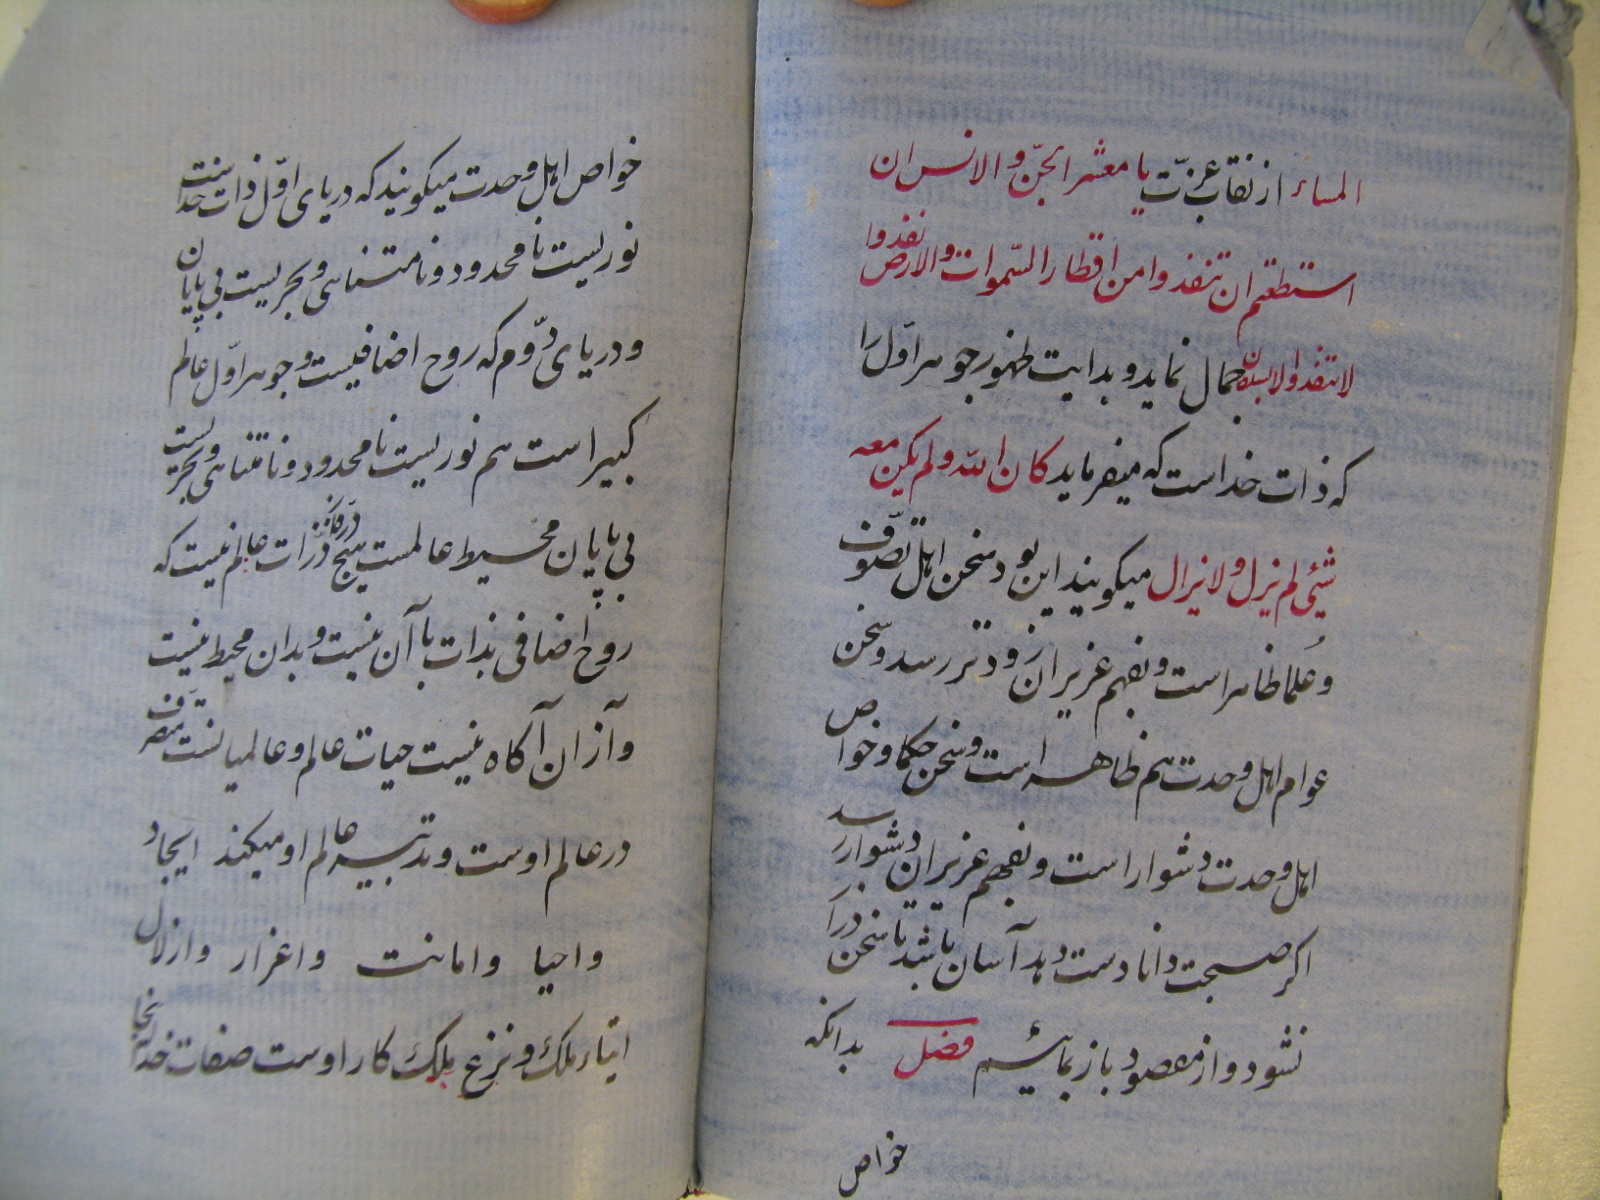 المساء از نقاب عزّت یا معشر الجنّ و الانس ان
استطعتم ان تنفذوا من اقطار السّموات و الارض نفذوا
لا تنفذوا الا بسلطان جمال نماید و بدایت ظهور جوهر اوّل را
که ذات خداست که میفرماید کان اللّه و لم یکن معه
شیئی لم یزل و لا یزال میگویند این بود سخن اهل تصوّف
و علما ظاهر است و بفهم عزیزان زودتر رسد و سخن
عوام اهل وحدت هم ظاهر است و سخن حکما و خواص
اهل وحدت دشوار است و بفهم عزیزان دشوار رسد
اکر صحبت دانا دست دهد آسان باشد تا سخن دراز
نشود و از مقصود باز نمانیم فصل بدانکه
خواص
خواص اهل وحدت میکویند که دریای اوّل ذات خداست
نوریست نامحدود و نامتناهی و بحریست بی پایان
و دریای دوّم که روح اضافیست و جوهر اوّل عالم
کبیر است هم نوریست نامحدود و نامتناهی و بحریست
بی پایان محیط عالمست هیچ ذرّه از ذرّات عالم نیست که
روح اضافی بذات با آن نیست و بدان محیط نیست
و از ان آکاه نیست حیات عالم و عالمیانست متصرّف
در عالم اوست و تدبیر عالم او میکند ایجاد
و احیا و اماتت و اعزاز و ازلال
ایتاء ملک و نزع ملک کار اوست صفات خدا اینجا